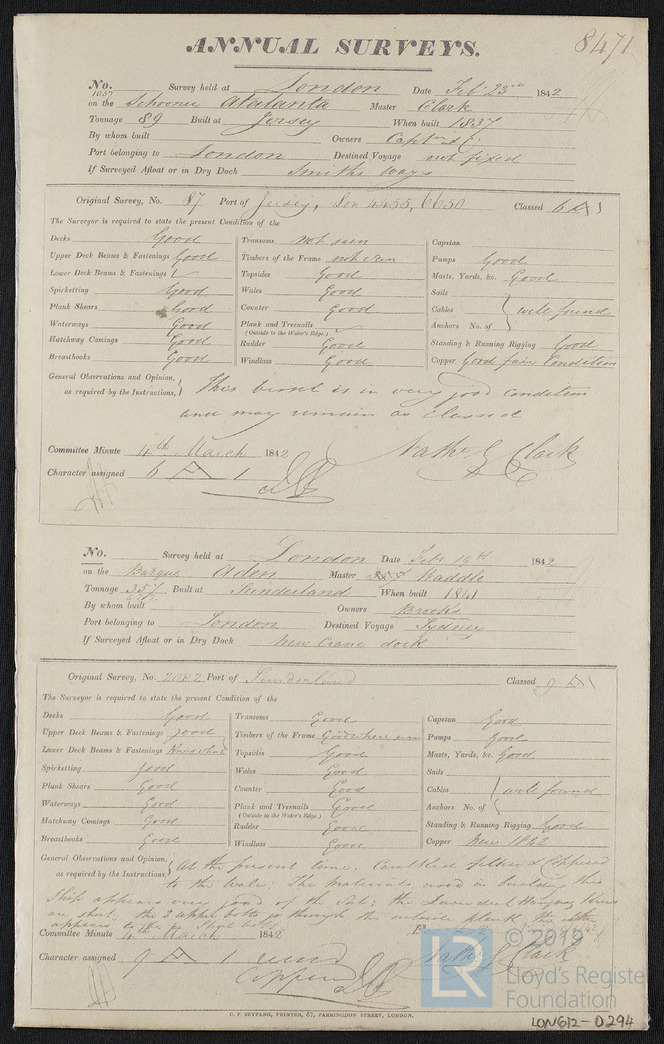 ANNUAL SURVEYS.
8471
No. 1057 Survey held at London Date Feb. 23rd 1842
on the Schooner Atalanta Master Clark
Tonnage 89 Built at Jersey When built 1837
By whom built Owners Captn &
Port belonging to London Destined Voyage not fixed
If Surveyed Afloat or in Dry Dock Smiths Ways
Original Survey, No. 87 Port of Jersey, Lon 4455, 6650 Classed 6 A 1
The Surveyor is required to state the present Condition of the
Decks Good
Upper Deck Beams & Fastenings Good
Lower Deck Beams & Fastenings
Spirketting Good
Plank Shears Good
Waterways Good
Hatchway Comings Good
Breasthooks Good
Transoms not seen
Timbers of the Frame not seen
Topsides Good
Wales Good
Counter Good
Plank and Treenails
(Outside to the Water's Edge.)
Rudder Good
Windlass Good
Capstan
Pumps Good
Masts, Yards, &c. Good
Sails
Cables well found
Anchors No. of
Standing & Running Rigging Good
Copper Good fair Condition
General Observations and Opinion, This vessel is in very good condition
as required by the Instructions, and may remain as classed
Committee Minute 4th March 1842 Nathl G Clark
Character assigned 6 A 1
No. Survey held at London Date Feb 19th 1842
on the Barque Aden Master Waddle
Tonnage 357 Built at Sunderland When built 1841
By whom built Owners Brooks
Port belonging to London Destined Voyage Sydney
If Surveyed Afloat or in Dry Dock New Crane dock
Original Survey, No. 2082 Port of Sunderland Classed 9 A 1
The Surveyor is required to state the present Condition of the
Decks Good
Upper Deck Beams & Fastenings Good
Lower Deck Beams & Fastenings
Spirketting good
Plank Shears Good
Waterways Good
Hatchway Comings Good
Breasthooks Good
Transoms Good
Timbers of the Frame Good where seen
Topsides Good
Wales Good
Counter Good
Plank and Treenails Good
(Outside to the Water's Edge.)
Rudder Good
Windlass Good
Capstan Good
Pumps Good
Masts, Yards, &c. Good
Sails
Cables well found
Anchors No. of
Standing & Running Rigging Good
Copper New 1842
General Observations and Opinion, At the present time. Caulked felted & Coppered
as required by the Instructions, to the wale. The materials used in building this
Ship appears very good of the sort; the Lower deck Hanging Knees
are short. the 2 upper bolts go through the outside plank the
appears to be
Committee Minute 4th March 1842
Character assigned 9 A 1 Nathl G Clark
Coppered
© 2019
LR
Lloyd's Register
Foundation
C. F. SEYFANG, PRINTER, 87, FARRINGDON STREET, LONDON.
LON612-0294